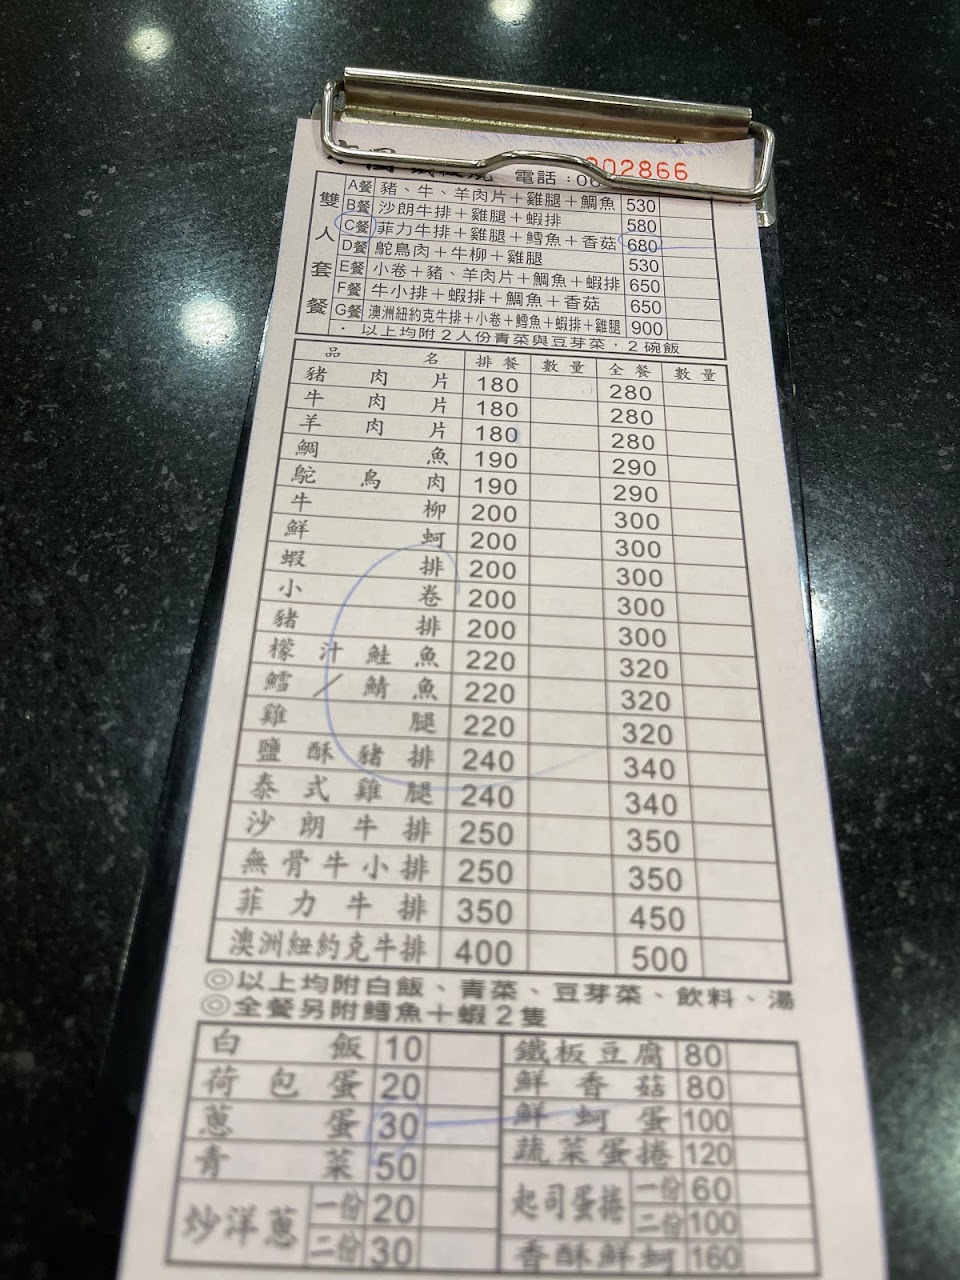 電話：0 002866
雙人套餐
A餐 豬、牛、羊肉片＋雞腿＋鯛魚 530
B餐 沙朗牛排＋雞腿＋蝦排 580
C餐 菲力牛排＋雞腿＋鱈魚＋香菇 680
D餐 鴕鳥肉＋牛柳＋雞腿 530
E餐 小卷＋豬、羊肉片＋鯛魚＋蝦排 650
F餐 牛小排＋蝦排＋鯛魚＋香菇 650
G餐 澳洲紐約克牛排＋小卷＋鱈魚＋蝦排＋雞腿 900
．以上均附2人份青菜與豆芽菜．2碗飯
品名 排餐 數量 全餐 數量
豬肉片 180 280
牛肉片 180 280
羊肉片 180 280
鯛魚 190 290
鴕鳥肉 190 290
牛柳 200 300
鮮蚵 200 300
蝦排 200 300
小卷 200 300
豬排 200 300
檬汁鮭魚 220 320
鱈／鯖魚 220 320
雞腿 220 320
鹽酥豬排 240 340
泰式雞腿 240 340
沙朗牛排 250 350
無骨牛小排 250 350
菲力牛排 350 450
澳洲紐約克牛排 400 500
◎以上均附白飯、青菜、豆芽菜、飲料、湯
◎全餐另附鱈魚＋蝦2隻
白飯 10 鐵板豆腐 80
荷包蛋 20 鮮香菇 80
蔥蛋 30 鮮蚵蛋 100
青菜 50 蔬菜蛋捲 120
炒洋蔥 一份 20 起司蛋捲 一份 60
二份 30 二份 100
香酥鮮蚵 160